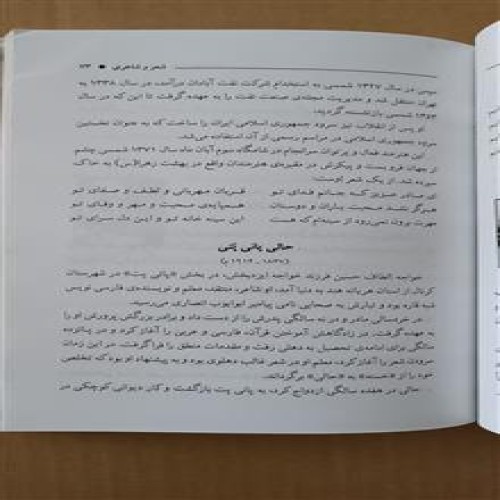 شعر و شاعری ● ۷۳
سپس در سال ۱۳۲۷ شمسی به استخدام شرکت نفت آبادان درآمد، در سال ۱۳۳۸ به
تهران منتقل شد و مدیریت مجله‌ی صنعت نفت را به عهده گرفت تا این که در سال
۱۳۶۳ شمسی بازنشسته گردید.
او پس از انقلاب، نیز سرود جمهوری اسلامی ایران را ساخت که به عنوان نخستین
سرود جمهوری اسلامی، در مراسم رسمی از آن استفاده می‌شد.
این هنرمند فعال و پرتوان سرانجام در شامگاه سوم آبان ماه سال ۱۳۷۱ شمسی چشم
از جهان فرو بست و پیکرش در مقبره‌ی هنرمندان واقع در بهشت زهرا(س) به خاک
سپرده شد. از یک شعر اوست:
ای مادر عزیز که جانم فدای تو قربان مهربانی و لطف و صفای تو
هرگز نشد محبت یاران و دوستان همپایه‌ی محبت و مهر و وفای تو
مهرت برون نمی‌رود از سینه‌ام که هست این سینه خانه تو و این دل سرای تو
حالی پانی پتی
(۱۸۳۷ ـ ۱۹۱۴ م)
خواجه الطاف حسین فرزند خواجه ایزدبخش، در بخش «پانی پت» در شهرستان
کرنال از استان هریانه هند به دنیا آمد، او شاعر، منتقد، معلم و نویسنده‌ی فارسی نویس
شبه قاره بود و تبارش به صحابی نامی پیامبر ابوایوب انصاری می‌رسید.
در خردسالی مادر و در نه سالگی پدرش را از دست داد و برادر بزرگش پرورش او را
به عهده گرفت، در زادگاهش آموختن قرآن، فارسی و عربی را آغاز کرد و در پانزده
سالگی برای ادامه‌ی تحصیل به دهلی رفت و مقدمات منطق را فراگرفت، در این زمان
سرودن شعر را آغاز کرد، معلم او در شعر غالب دهلوی بود و به پیشنهاد او بود که تخلص
خود را از «خسته» به «حالی» برگرداند.
حالی در هفده سالگی ازدواج کرد، به پانی پت بازگشت و کار دیوانی کوچکی در